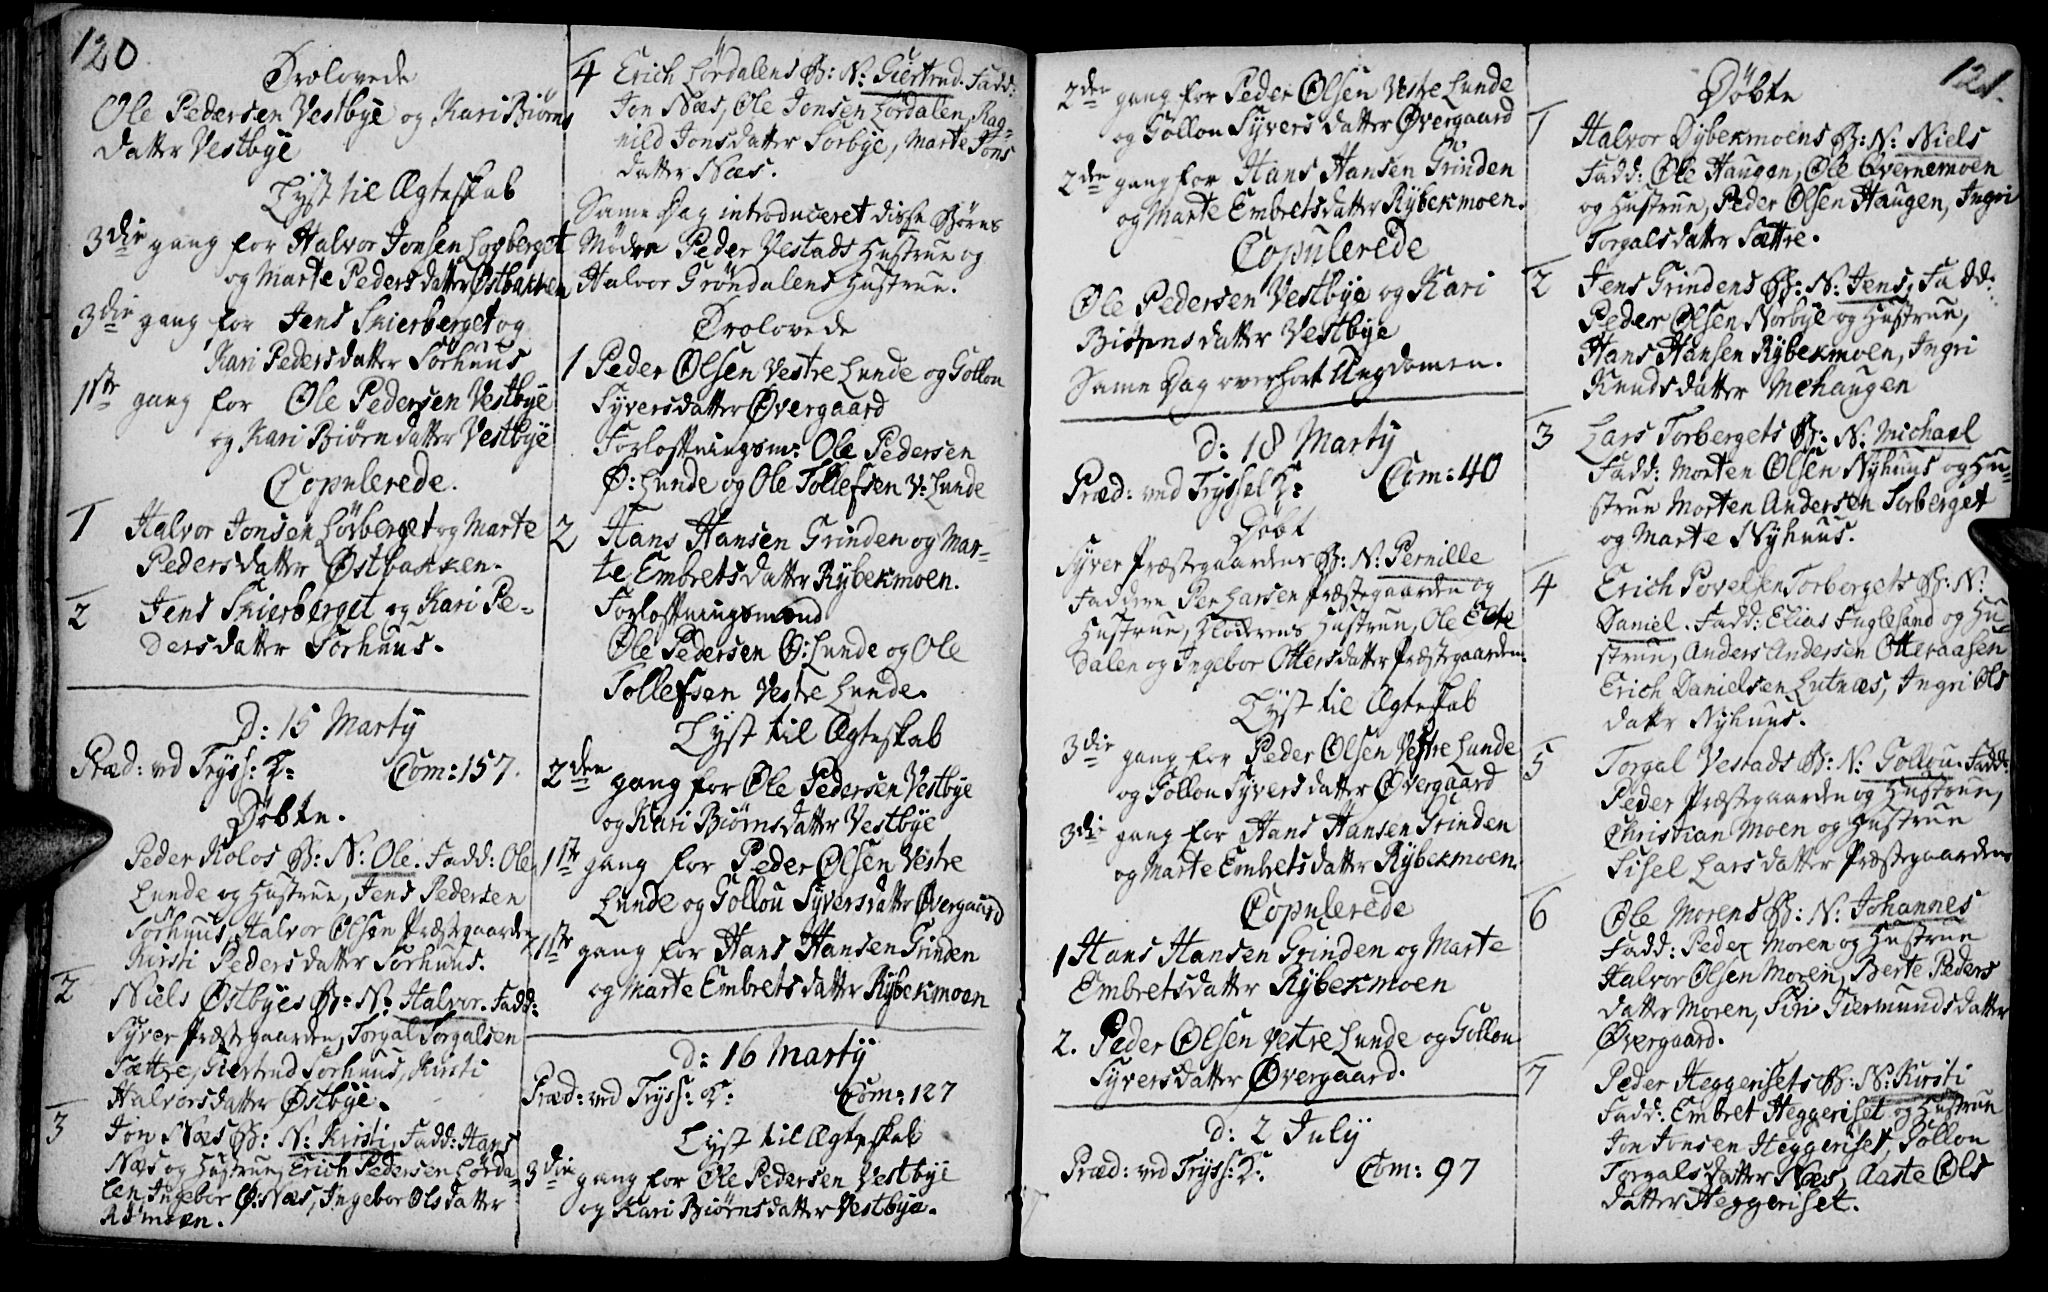 120.
Trolovede
Ole Pedersen Vestbye og Kari Biørns
datter Vestbye
Lyst til Ægteskab
3die gang for Halvor Jonsen Logberget
og Marte Peders datter Østbakken
3die gang for Jens Skierberget og
Kari Pedersdatter Sørhuus
1ste gang for Ole Pedersen Vestbye
og Kari Biørn datter Vestbye
Copulerede.
1 Halvor Jonsen Løvberget og Marte
Pedersdatter Østbakken.
2 Jens Skierberget og Kari Pe-
dersdatter Sørhuus.
D: 15 Martij
Præd: ved Tryss: K: Com: 157.
Døbte.
Peder Kolos B: N: Ole. Fadd: Ole
Lunde og Hustrue, Jens Pedersen
Sørhuus, Halvor Olsen Præstegaarden
Kirsti Pedersdatter Sørhuus.
2 Niels Østbyes B: N: Halvor. Fadd:
Syver Præstegaarden, Torgal Torgalsen
Sættre, Giertrud Sørhuus, Kirsti
Halvorsdatter Østbye.
3 Jon Næs B: N: Kirsti, Fadd: Hans
Næs og Hustrue, Erich Pedersen Lørda-
len, Ingebor Ø: Næs, Ingebor Olsdatter
4 Erich Lørdalens B: N: Giertrud. Fadd:
Jon Næs, Ole Jonsen Lørdalen, Rag-
nild Jonsdatter Sorbye, Marte Jons
datter Næs.
Same Dag introduceret disse Børns
Mødre Peder Vestads Hustrue og
Halvor Grøndalens Hustrue.
Trolovede
1 Peder Olsen Vestre Lunde og Gollou
Syversdatter Øvergaard
Forlofningsm: Ole Pedersen
Ø: Lunde og Ole Tollefsen V: Lunde
2 Hans Hansen Grinden og Mar-
te Embretsdatter Rybekmoen.
Forlofningsmænd
Ole Pedersen Ø: Lunde og Ole
Tollefsen Vestre Lunde.
Lyst til Ægteskab
2den gang for Ole Pedersen Vestbye
og Kari Biørnsdatter Vestbye
1ste gang for Peder Olsen Vestre
Lunde og Gollou Syversdatter Øvergaard
1ste gang for Hans Hansen Grinden
og Marte Embretsdatter Rybekmoen
d: 16 Martij
Præd: ved Tryss: K: Com: 127
Lyst til Ægteskab
3die gang for Ole Pedersen Vestbye
og Kari Biørnsdatter Vestbye.
2den gang for Peder Olsen Vestre Lunde
og Gollou Syvers datter Øvergaard
2den gang for Hans Hansen Grinden
og Marte Embretsdatter Rybekmoen.
Copulerede
Ole Pedersen Vestbye og Kari
Biørnsdatter Vestbye
Same Dag overhørt Ungdomen.
d: 18 Martij
Præd: ved Tryssel K: Com: 40
Døbt
Syver Præstegaardens B: N: Pernille
Faddere Per Larsen Præstegaarden og
Hustrue, Klokerens Hustrue, Ole Elte
dalen og Ingebor Ottersdatter Præstegaarden.
Lyst til Ægteskab
3die gang for Peder Olsen Vestre Lunde
og Gollou Syvers datter Øvergaard
3die gang for Hans Hansen Grinden
og Marte Embretsdatter Rybekmoen.
Copulerede
1 Hans Hansen Grinden og Marte
Embretsdatter Rybekmoen
2. Peder Olsen Vestre Lunde og Gollou
Syversdatter Øvergaard.
d: 2 July
Præd: ved Tryss: K: Com: 97
121.
Døbte
1 Halvor Dybekmoens B: N: Niels
Fadd: Ole Haugen, Ole Qvernemoen
og Hustrue, Peder Olsen Haugen, Ingri
Torgalsdatter Sættre.
2 Jens Grindens B: N: Jens, Fadd:
Peder Olsen Norbye og Hustrue,
Hans Hansen Rybekmoen, Ingri
Knudsdatter Mehaugen
3 Lars Torbergets B: N: Michael
Fadd: Morten Olsen Nyhuus og Hu-
strue Morten Andersen Torberget
og Marte Nyhuus.
4 Erich Povelsen Torbergets B: N:
Daniel. Fadd: Elias Fuglesand og Hu-
strue, Anders Andersen Otteraasen
Erich Danielsen Lutnæs, Ingri Ols
datter Nyhuus.
5 Torgal Vestads B: N: Gollou. Fadd:
Peder Præstegaarden og Hustrue,
Christian Moen og Hustrue
Sisel Larsdatter Præstegaarden
6 Ole Morens B: N: Johannes
Fadd: Peder Moren og Hustrue
Halvor Olsen Moren, Berte Peders
datter Moren, Siri Giermunds datter
Øvergaard.
7 Peder Heggerisets B: N: Kirsti
Fadd: Embret Heggeriset og Hustrue
Jon Jonsen Heggeriset, Gollou
Torgals datter Næs, Aaste Ols
datter Heggeriset.